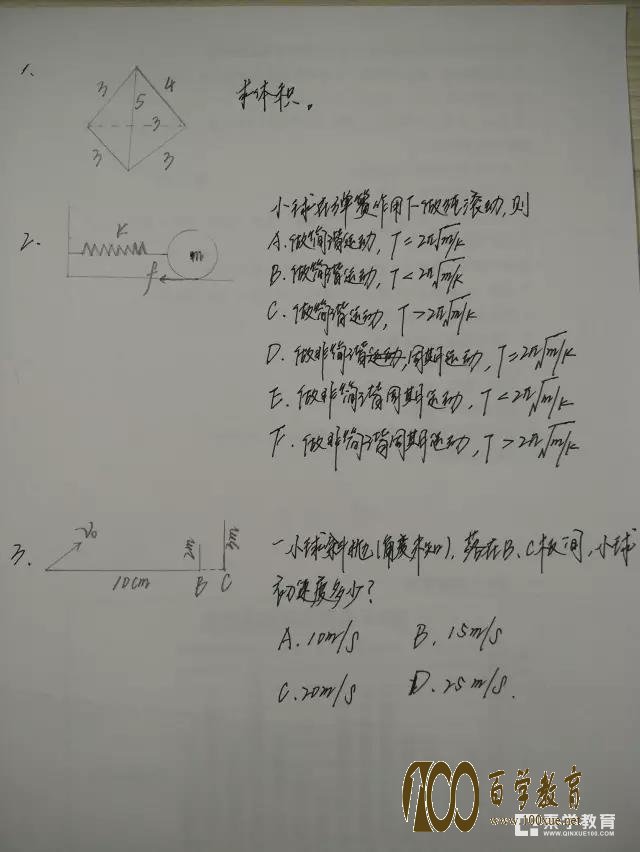 1、
3
4
5
3
3
3
求体积。
2.
K
m
f
小球在弹簧作用下做纯滚动,则
A.做简谐运动, T=2π√m/k
B.做简谐运动, T<2π√m/k
C.做简谐运动, T>2π√m/k
D.做非简谐周期运动, T=2π√m/k
E.做非简谐周期运动, T<2π√m/k
F.做非简谐周期运动, T>2π√m/k
3.
v₀
2m
3m
10cm
B
C
一小球斜抛(角度未知), 落在B、C板间, 小球
初速度多少?
A. 10m/s B. 15m/s
C. 20m/s D. 25m/s.
100百学教育
www.100xue.net
亲学教育
WWW.QINXUE100.COM